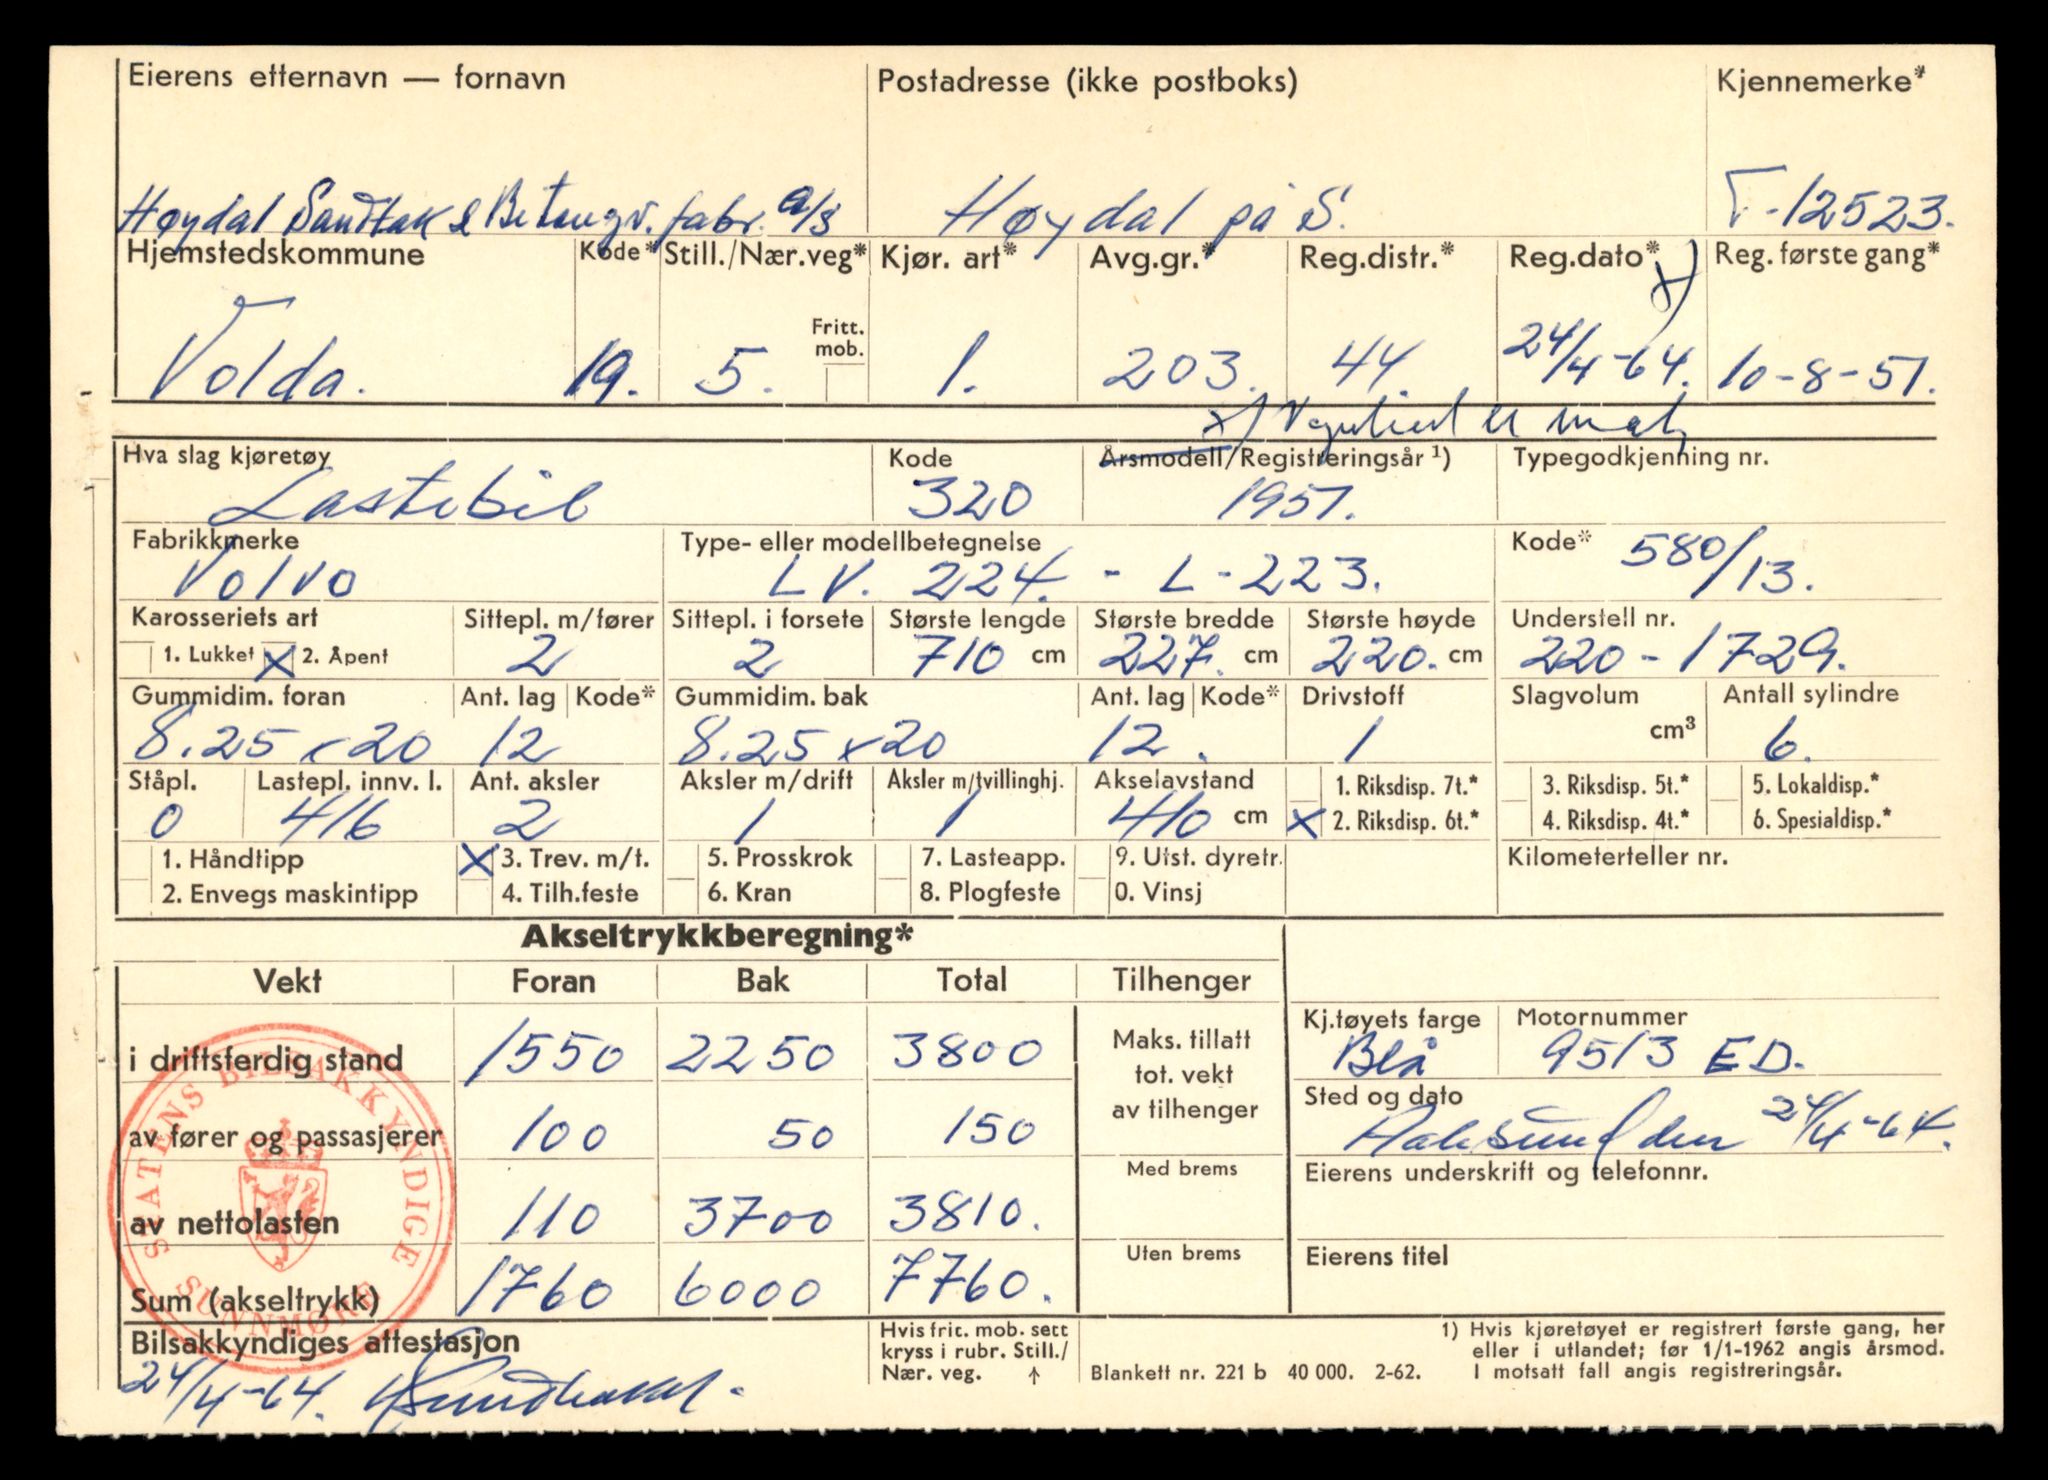 Eierens etternavn — fornavn Postadresse (ikke postboks) Kjennemerke*
Høydal Sandtak & Betongv. fabr. a/s Høydal på S. T-12523.
Hjemstedskommune Kode* Still./Nær.veg* Kjør. art* Avg.gr.* Reg.distr.* Reg.dato* x) Reg. første gang*
Fritt. mob.
Volda. 19. 5. 1. 203. 44. 24/4-64. 10-8-51.
x)
Hva slag kjøretøy Kode Årsmodell/Registreringsår ¹) Typegodkjenning nr.
Lastebil 320 1951.
Fabrikkmerke Type- eller modellbetegnelse Kode*
Volvo LV. 224. - L-223. 580/13.
Karosseriets art Sittepl. m/fører Sittepl. i forsete Største lengde Største bredde Største høyde Understell nr.
1. Lukket X 2. Åpent 2 2 710 cm 227. cm 220. cm 220-1729.
Gummidim. foran Ant. lag Kode* Gummidim. bak Ant. lag Kode* Drivstoff Slagvolum Antall sylindre
8.25 x 20 12 8.25 x 20 12. 1 cm³ 6.
Ståpl. Lastepl. innv. l. Ant. aksler Aksler m/drift Aksler m/tvillinghj. Akselavstand 1. Riksdisp. 7t.* 3. Riksdisp. 5t.* 5. Lokaldisp.*
0 416 2 1 1 410 cm X 2. Riksdisp. 6t.* 4. Riksdisp. 4t.* 6. Spesialdisp.*
1. Håndtipp X 3. Trev. m/t. 5. Prosskrok 7. Lasteapp. 9. Utst. dyretr. Kilometerteller nr.
2. Envegs maskintipp 4. Tilh.feste 6. Kran 8. Plogfeste 0. Vinsj
Akseltrykkberegning*
Vekt Foran Bak Total Tilhenger
i driftsferdig stand 1550 2250 3800
av fører og passasjerer 100 50 150
av nettolasten 110 3700 3810.
Sum (akseltrykk) 1760 6000 7760.
Maks. tillatt
tot. vekt
av tilhenger
Med brems
Uten brems
Kj.tøyets farge Motornummer
Blå 9513 ED.
Sted og dato
den 24/4-64.
Eierens underskrift og telefonnr.
Eierens titel
STATENS BILSAKKYNDIGE
SUNNMØRE
Bilsakkyndiges attestasjon
24/4-64.
Hvis frit. mob. sett
kryss i rubr. Still./
Nær. veg. ↑
Blankett nr. 221 b 40 000. 2-62.
1) Hvis kjøretøyet er registrert første gang, her
eller i utlandet; før 1/1-1962 angis årsmod.
I motsatt fall angis registreringsår.